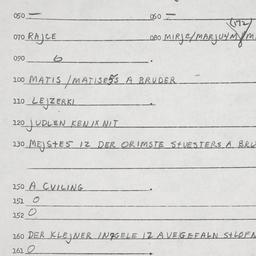 050 — 060 —
070 RAJZE 080 MIRJE/MARJUM
090 6
100 MATIS / MATISES A BRUDER
110 LEJZERKI
120 JUDLEN KEN IX NIT
130 MEJSTES IZ DER ORIMSTE SVESTERS A BRU
150 A CVILING
151 0
152 0
160 DER KLEJNER INGELE IZ AVEGEFALN
161 0